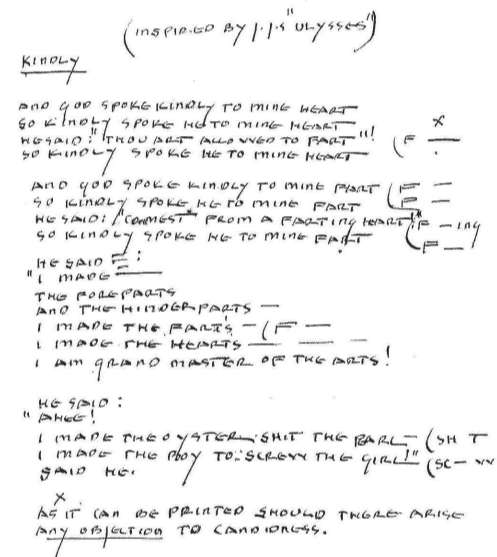 (INSPIRED BY J.J.'S "ULYSSES")
KINDLY
AND GOD SPOKE KINDLY TO MINE HEART
SO KINDLY SPOKE HE TO MINE HEART
HE SAID: "THOU ART ALLOWED TO FART"! (F —
SO KINDLY SPOKE HE TO MINE HEART
AND GOD SPOKE KINDLY TO MINE FART (F —
SO KINDLY SPOKE HE TO MINE FART (F —
HE SAID: "COMMEST FROM A FARTING HEART!" (F — ING
SO KINDLY SPOKE HE TO MINE FART (F —
HE SAID :
"I MADE
THE FOREPARTS
AND THE HINDERPARTS —
I MADE THE FARTS — (F —
I MADE THE HEARTS — — —
I AM GRAND MASTER OF THE ARTS!
HE SAID :
"AHEE!
I MADE THE OYSTER SHIT THE PARL — (SH T
I MADE THE BOY TO SCREW THE GIRL!" (SC — W
SAID HE.
X
AS IT CAN BE PRINTED SHOULD THERE ARISE
ANY OBJECTION TO CANDIDNESS.